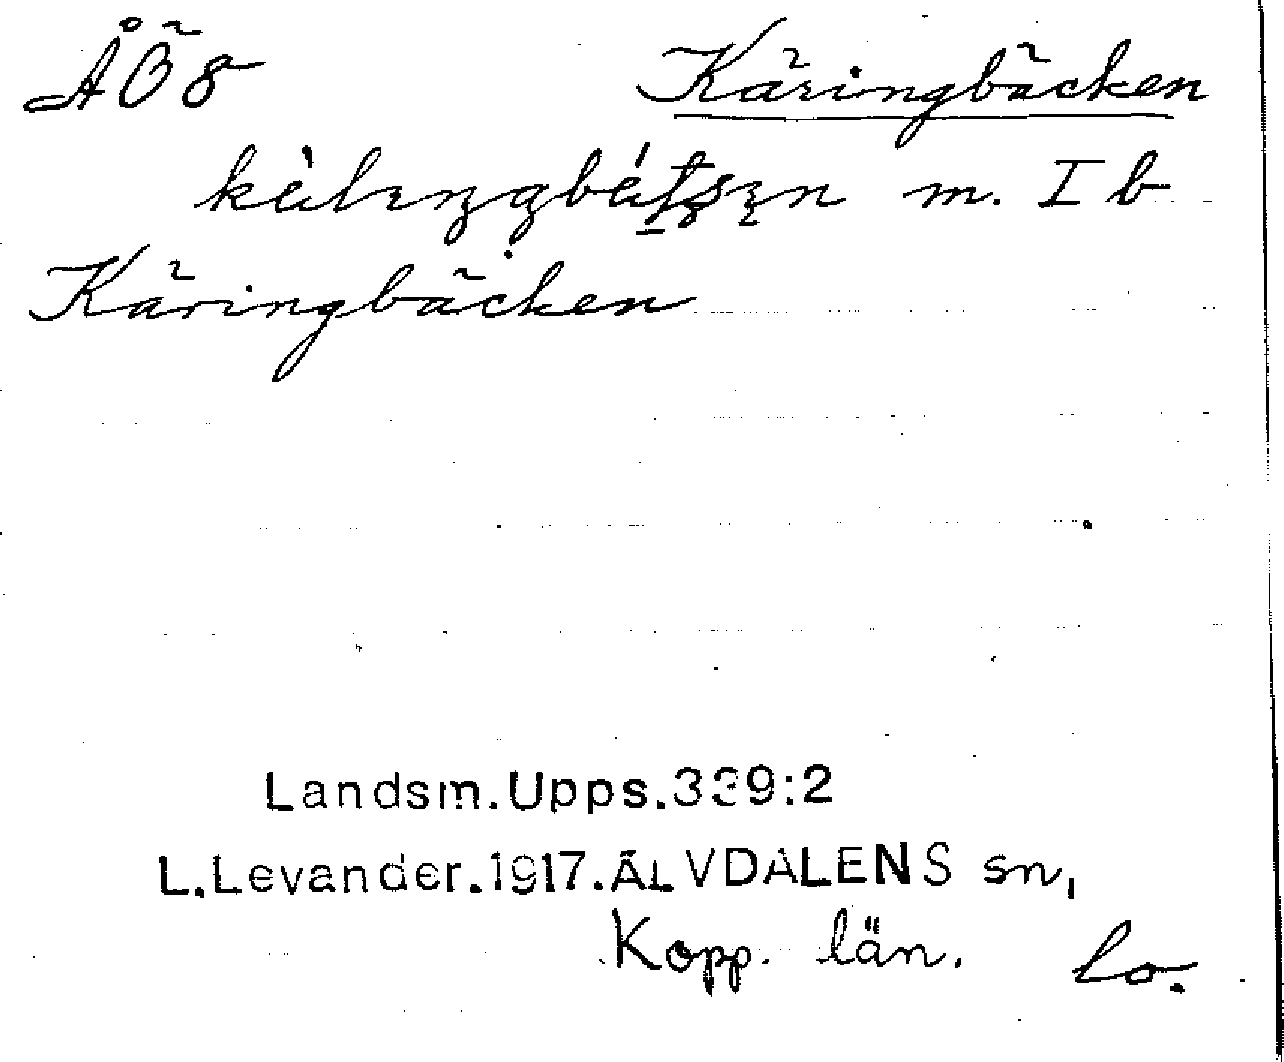 ÅÖ8 Käringbäcken
m. I b
Käringbäcken
Landsm.Upps.339:2
L.Levander.1917.ÄLVDALENS sn,
Kopp. län. lo.